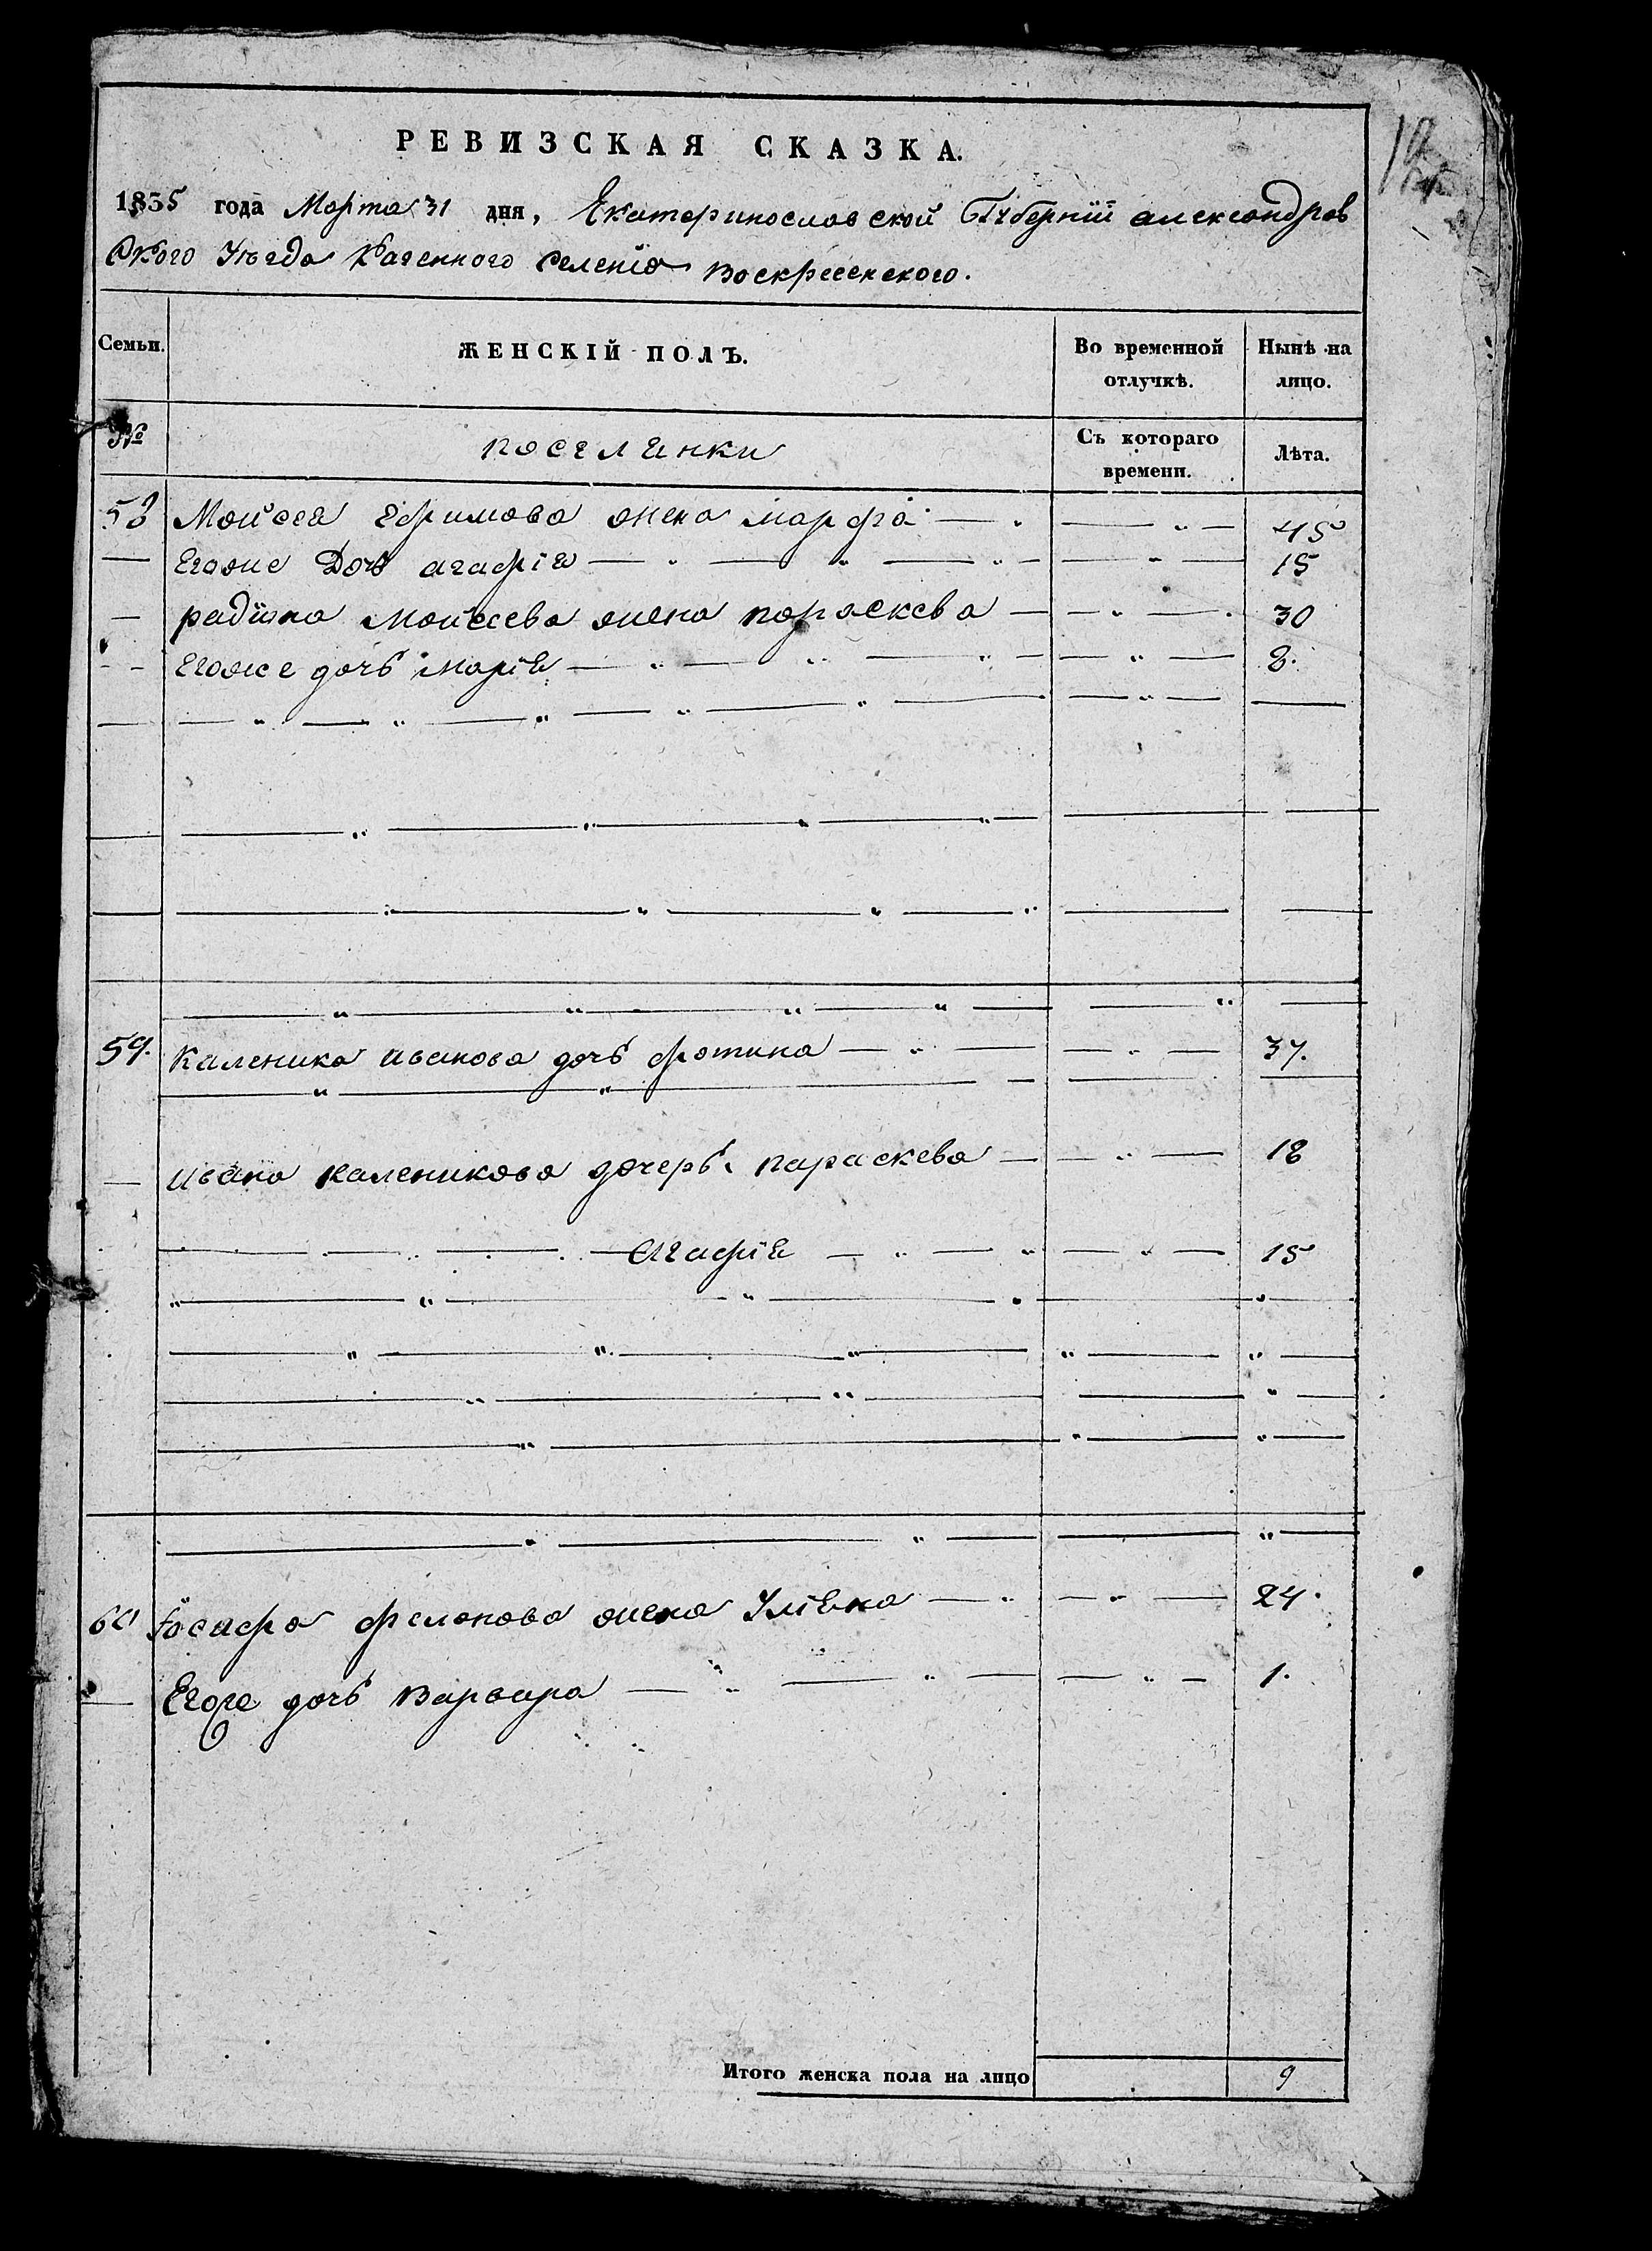 РЕВИЗСКАЯ СКАЗКА.
1835 года Марта 31 дня, Екатеринославской Губерніи александров
ского Уезда Казенного селенія воскресенского.
Семьи. ЖЕНСКІЙ ПОЛЪ. Во временной отлучкѣ. Нынѣ на лицо.
№ поселянки Съ котораго времени. Лѣта.
58 Моисея ефимова жена марфа 45
Егоже Дочь агафія 15
радиона Моисеева жена параскева 30
Егоже дочь марія 8.
59. Каленика иванова дочь фотина 37.
ивана каленикова дочери параскева 18
Агафія 15
60 Іосафа филонова жена Улияна 24.
Егоже дочь варвара 1.
Итого женска пола на лицо 9